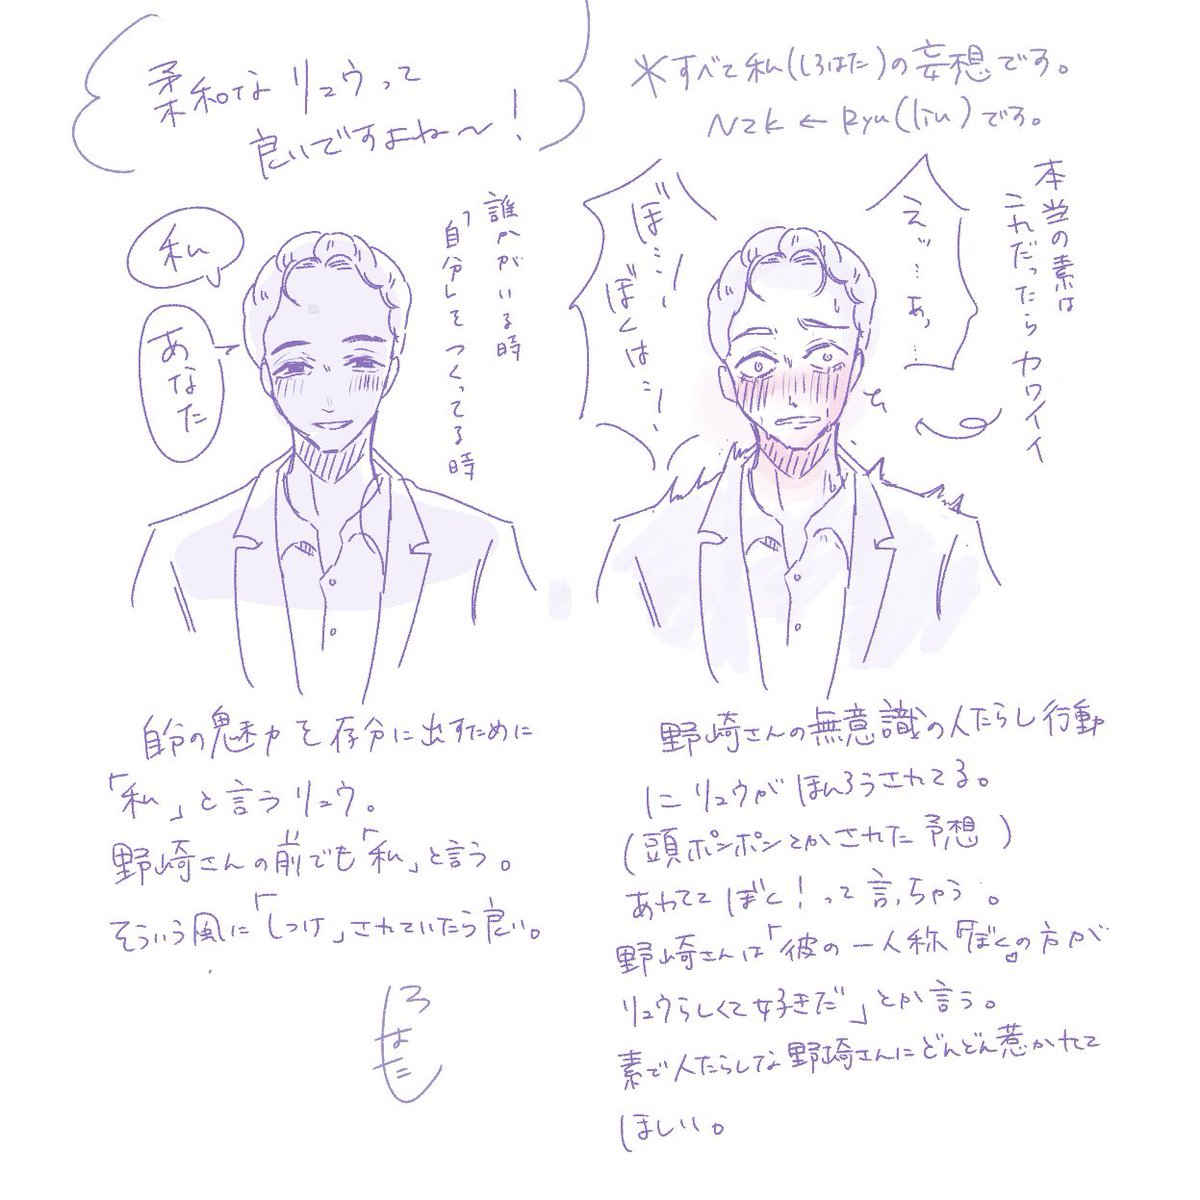 柔和なリュウって
良いですよね〜!
*すべて私(しろはた)の妄想です。
NZK ← Ryu(liu)です。
私
あなた
誰かがいる時
「自分」をつくってる時
ぼ…ッ!
ぼくは…ッ!
えッ…あっ…
本当の素は
これだったらカワイイ
自分の魅力を存分に出すために
「私」と言うリュウ。
野崎さんの前でも「私」と言う。
そういう風に「しつけ」されていたら良い。
しろはた
野崎さんの無意識の人たらし行動
にリュウがほんろうされてる。
(頭ポンポンとかされた予想)
あわててぼく!って言っちゃう。
野崎さんは「彼の一人称『ぼく』の方が
リュウらしくて好きだ」とか言う。
素で人たらしな野崎さんにどんどん惹かれてて
ほしい。